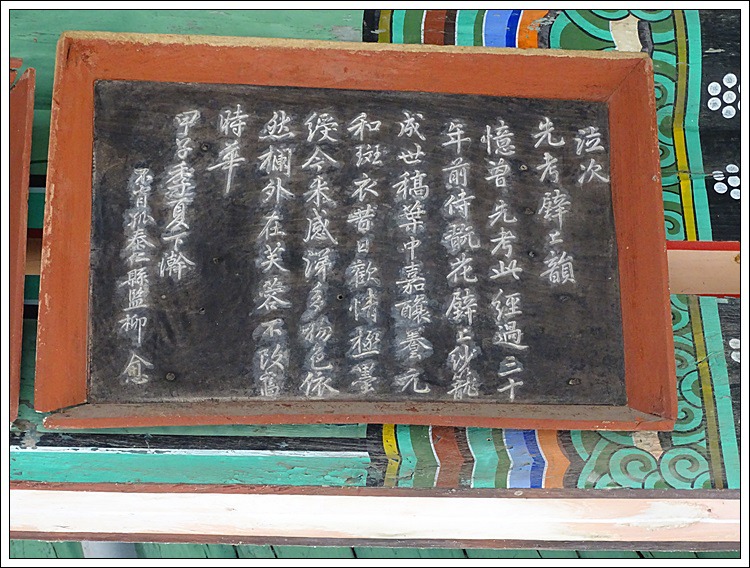 泣次
先考壁上韻
憶曾先考此經過三十
年前侍翫花壁上紗籠
成世稿葉中嘉釀養元
和斑衣昔日歡情極墨
綬今來感涕多物色依
然欄外在芙蓉不改舊
時華
甲子季夏下澣
不肖孤泰仁縣監柳愈